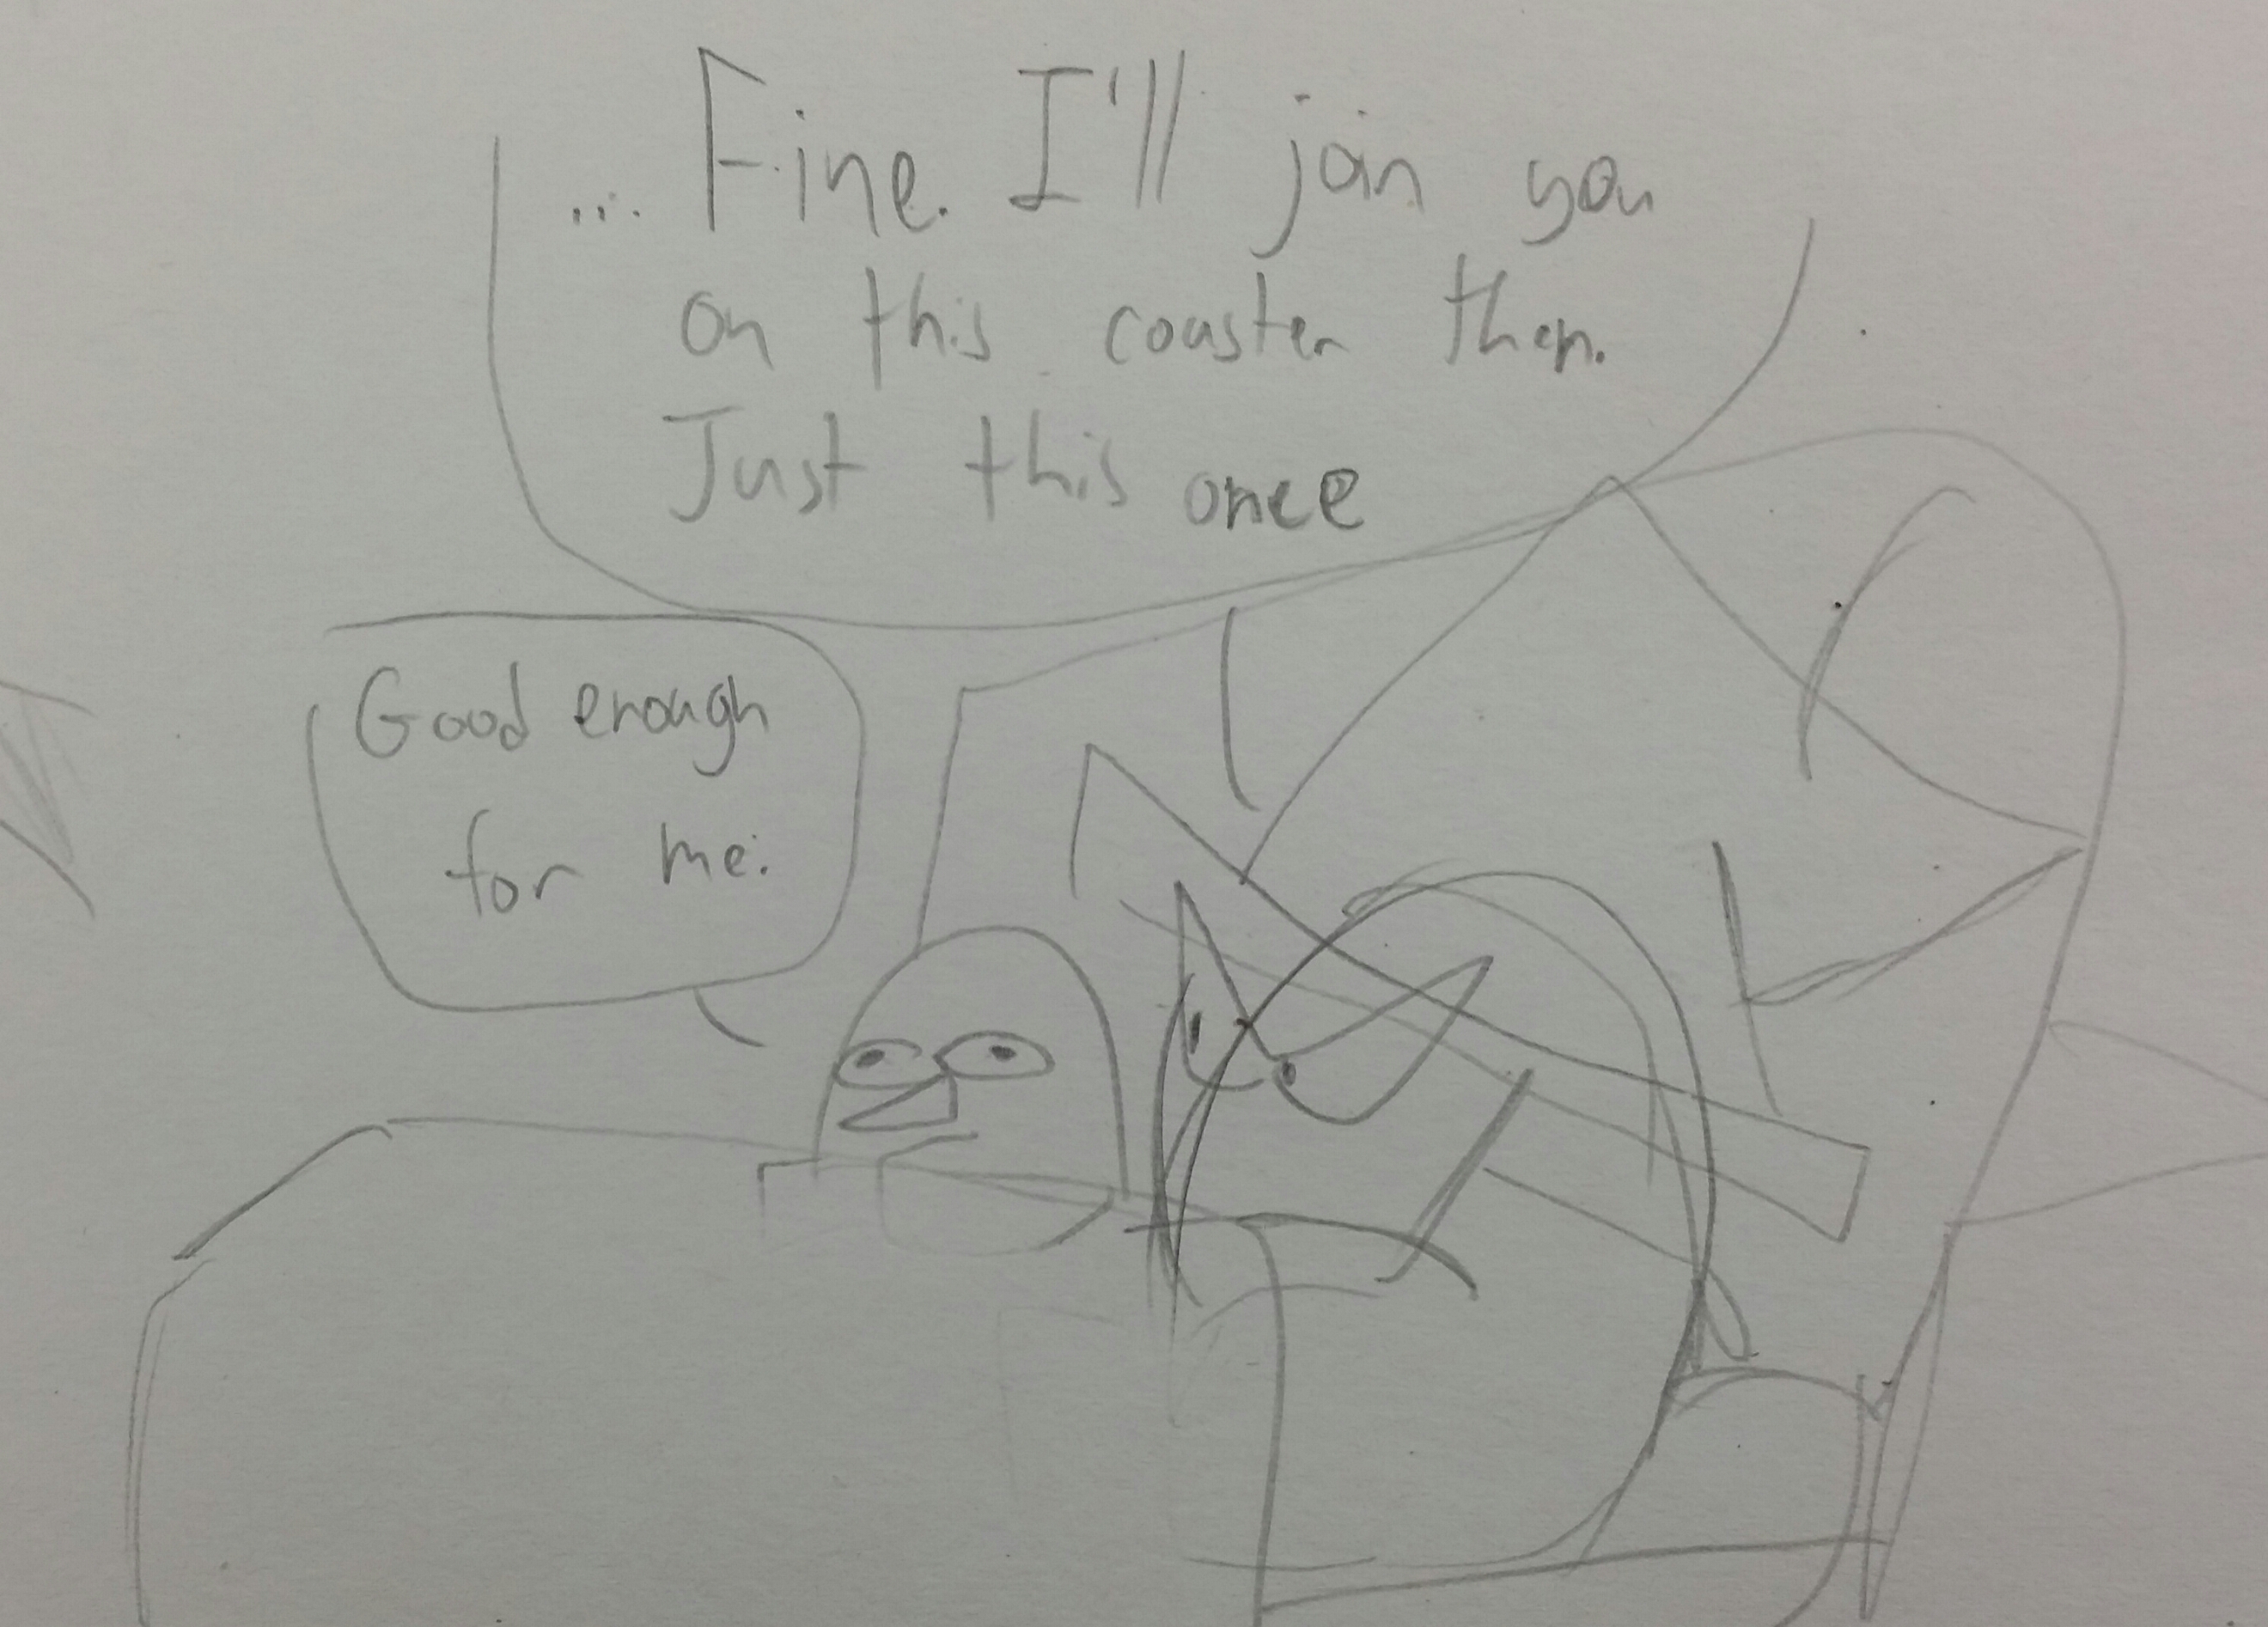 ... Fine. I'll join you
on this coaster then.
Just this once
Good enough
for me.